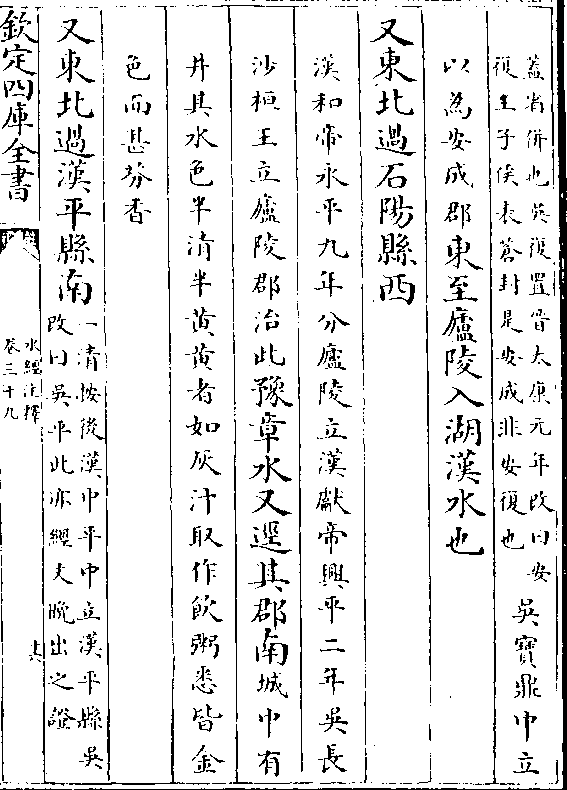 蓋省併也吳復置晉太康元年改曰安
復王子侯表蒼封是安成非安復也
吳寶鼎中立
以為安成郡東至廬陵入湖漢水也
又東北過石陽縣西
漢和帝永平九年分廬陵立漢獻帝興平二年吳長
沙桓王立廬陵郡治此豫章水又逕其郡南城中有
井其水色半清半黃黃者如灰汁取作飲粥悉皆金
色而甚芬香
又東北過漢平縣南
一清按後漢中平中立漢平縣吳
改曰吳平此亦經文晚出之證
欽定四庫全書
水經注釋
卷三十九